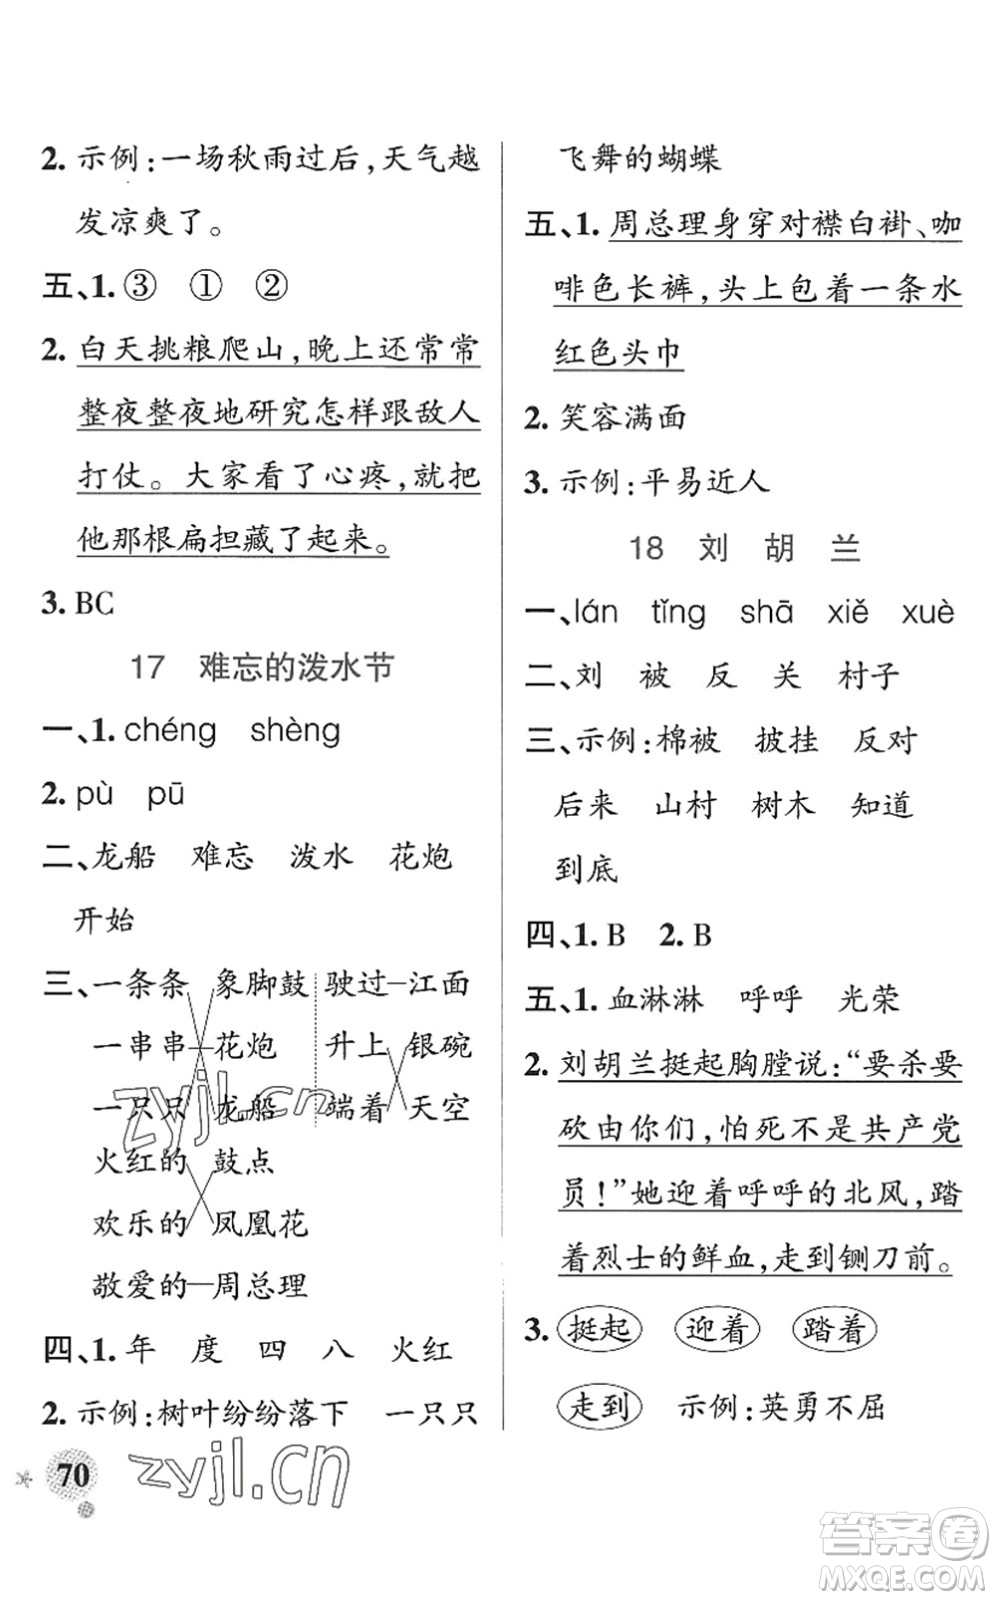 2. 示例:一场秋雨过后,天气越
发凉爽了。
五、1. ③ ① ②
2. 白天挑粮爬山,晚上还常常
整夜整夜地研究怎样跟敌人
打仗。大家看了心疼,就把
他那根扁担藏了起来。
3. BC
17 难忘的泼水节
一、1. chéng shèng
2. pù pū
二、龙船 难忘 泼水 花炮
开始
三、一条条 象脚鼓 驶过 江面
一串串 花炮 升上 银碗
一只只 龙船 端着 天空
火红的 鼓点
欢乐的 凤凰花
敬爱的 周总理
四、1. 年 度 四 八 火红
2. 示例:树叶纷纷落下 一只只
zyjl.cn
zyjl.cn
70
飞舞的蝴蝶
五、1. 周总理身穿对襟白褂、咖
啡色长裤,头上包着一条水
红色头巾
2. 笑容满面
3. 示例:平易近人
18 刘胡兰
一、lán tǐng shā xiě xuè
二、刘 被 反 关 村子
三、示例:棉被 披挂 反对
后来 山村 树木 知道
到底
四、1. B 2. B
五、1. 血淋淋 呼呼 光荣
2. 刘胡兰挺起胸膛说:“要杀要
砍由你们,怕死不是共产党
员!”她迎着呼呼的北风,踏
着烈士的鲜血,走到铡刀前。
3. 挺起 迎着 踏着
走到 示例:英勇不屈
答案卷
MXQE.COM